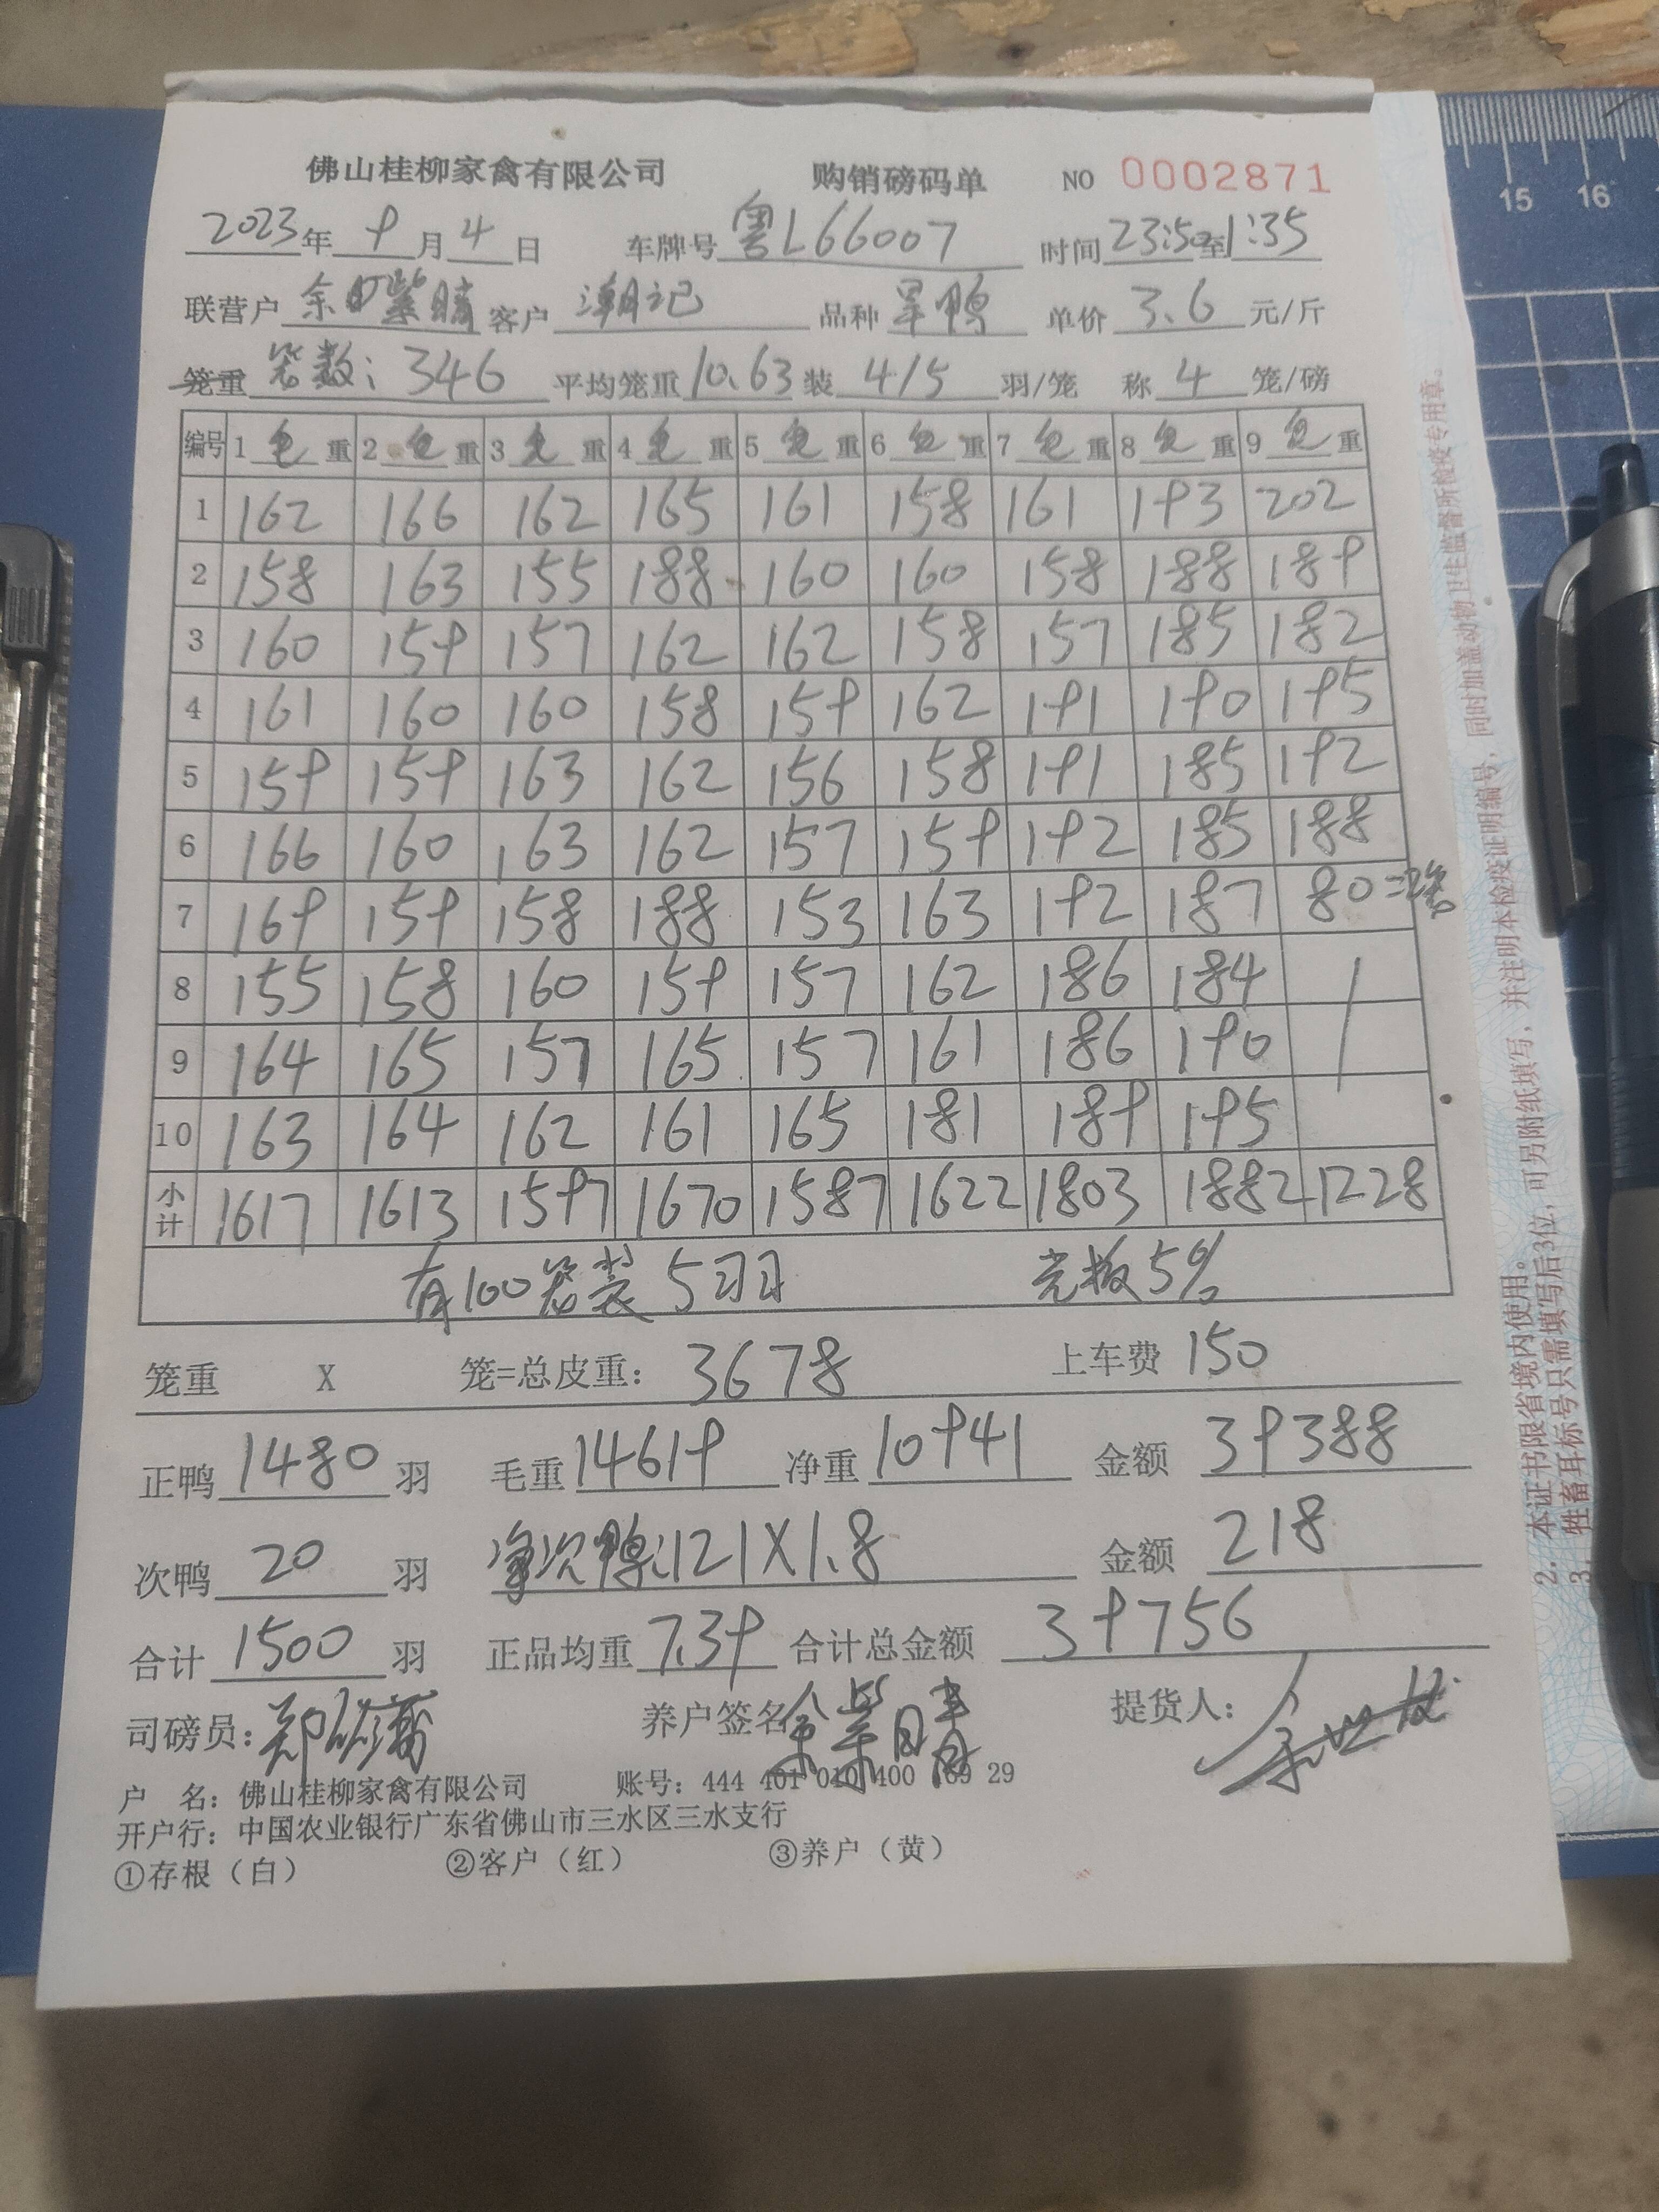 佛山桂柳家禽有限公司 购销磅码单 NO 0002871
2023年 9月4日 车牌号 粤L66007 时间 23:50至1:35
联营户 余紫晴 客户 潮记 品种 旱鸭 单价 3.6 元/斤
笼重 笼数: 346 平均笼重 10.63 装 4/5 羽/笼 称 4 笼/磅
编号 1 毛重 2 毛重 3 毛重 4 毛重 5 毛重 6 毛重 7 毛重 8 毛重 9 毛重
1 162 166 162 165 161 158 161 193 202
2 158 163 155 188 160 160 158 188 189
3 160 159 157 162 162 158 157 185 182
4 161 160 160 158 159 162 191 190 195
5 159 159 163 162 156 158 191 185 192
6 166 160 163 162 157 159 192 185 188
7 169 159 158 188 153 163 192 187 80
8 155 158 160 159 157 162 186 184
9 164 165 157 165 157 161 186 190
10 163 164 162 161 165 181 189 195
小计 1617 1613 1597 1670 1587 1622 1803 1882 1228
有100笼装5羽 光板5%
笼重 X 笼=总皮重: 3678 上车费 150
正鸭 1480 羽 毛重 14619 净重 10941 金额 39388
次鸭 20 羽 次鸭: 121X1.8 金额 218
合计 1500 羽 正品均重 7.39 合计总金额 39756
司磅员: 养户签名 余紫晴 提货人:
户 名: 佛山桂柳家禽有限公司 账号: 444 401 040 400 29
开户行: 中国农业银行广东省佛山市三水区三水支行
①存根（白） ②客户（红） ③养户（黄）
同时加盖动物卫生监督所检疫专用章。
2. 本证书限省境内使用。
3. 牲畜耳标号只需填写后3位, 可另附纸填写, 并注明本检疫证明编号,
15 16